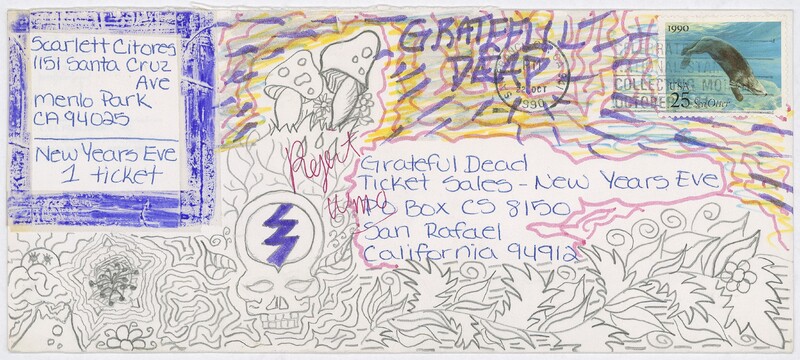 Scarlett Citores
1151 Santa Cruz
Ave
Menlo Park
CA 94025
New Years Eve
1 ticket
GRATEFUL
DEAD
22 OCT
1990
COLLECTING MONTH
OCTOBER
1990
USA
25 Sea Otter
Reject
umo
Grateful Dead
Ticket Sales - New Years Eve
PO Box CS 8150
San Rafael
California 94912